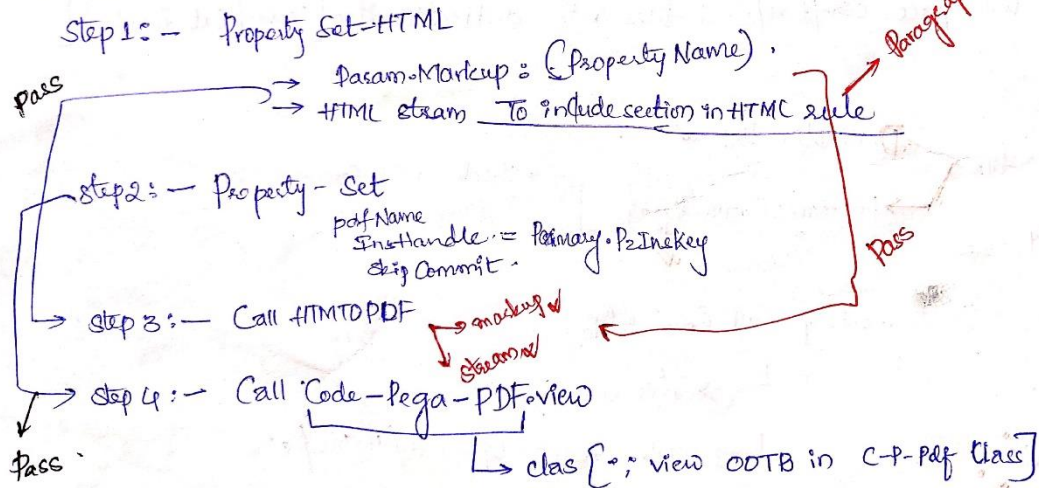 Step 1:- Property Set-HTML
Pass
→ Param.Markup : (Property Name).
→ HTML stream To include section in HTML rule
step 2:- Property-Set
pdfName
InsHandle = Primary.PzInsKey
Skip Commit.
Pass
→ step 3:- Call HTMTOPDF
→ markup ✓
→ stream ✓
→ step 4:- Call Code-Pega-PDF.view
Pass.
→ clas [•; view OOTB in C-P-Pdf Class]